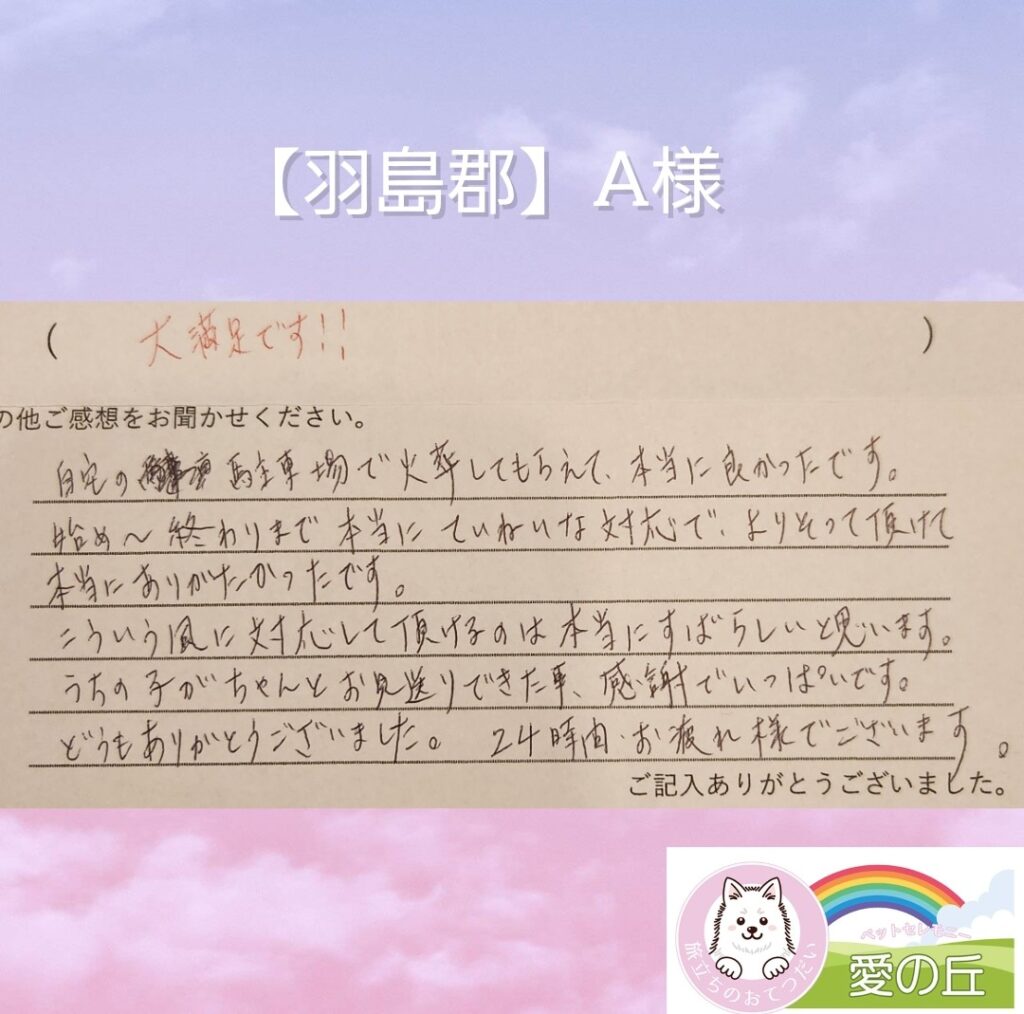 【羽島郡】A様
( 大満足です!! )
の他ご感想をお聞かせください。
自宅の 駐車場で火葬してもらえて、本当に良かったです。
始め〜終わりまで本当にていねいな対応で、よりそって頂けて
本当にありがたかったです。
こういう風に対応して頂けるのは本当にすばらしいと思います。
うちの子がちゃんとお見送りできた事、感謝でいっぱいです。
どうもありがとうございました。 24時間お疲れ様でございます。
ご記入ありがとうございました。
ペットセレモニー
愛の丘
旅立ちのおてつだい